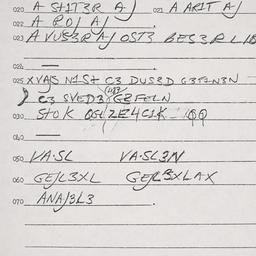 020 A SHIT3R AJ 021 A ARIT AJ
022 A ROJ AJ
023 A VUS3R AJ OST3 BES3R LIB
024
025 XVAJS N1St C3 DUS3D
C3 SVED3 G3FELN
030 StOK
040
050 VA·SL VA·SL3N
060 GEJL3XL GEJL3XLAX
070 ANAJ3L3